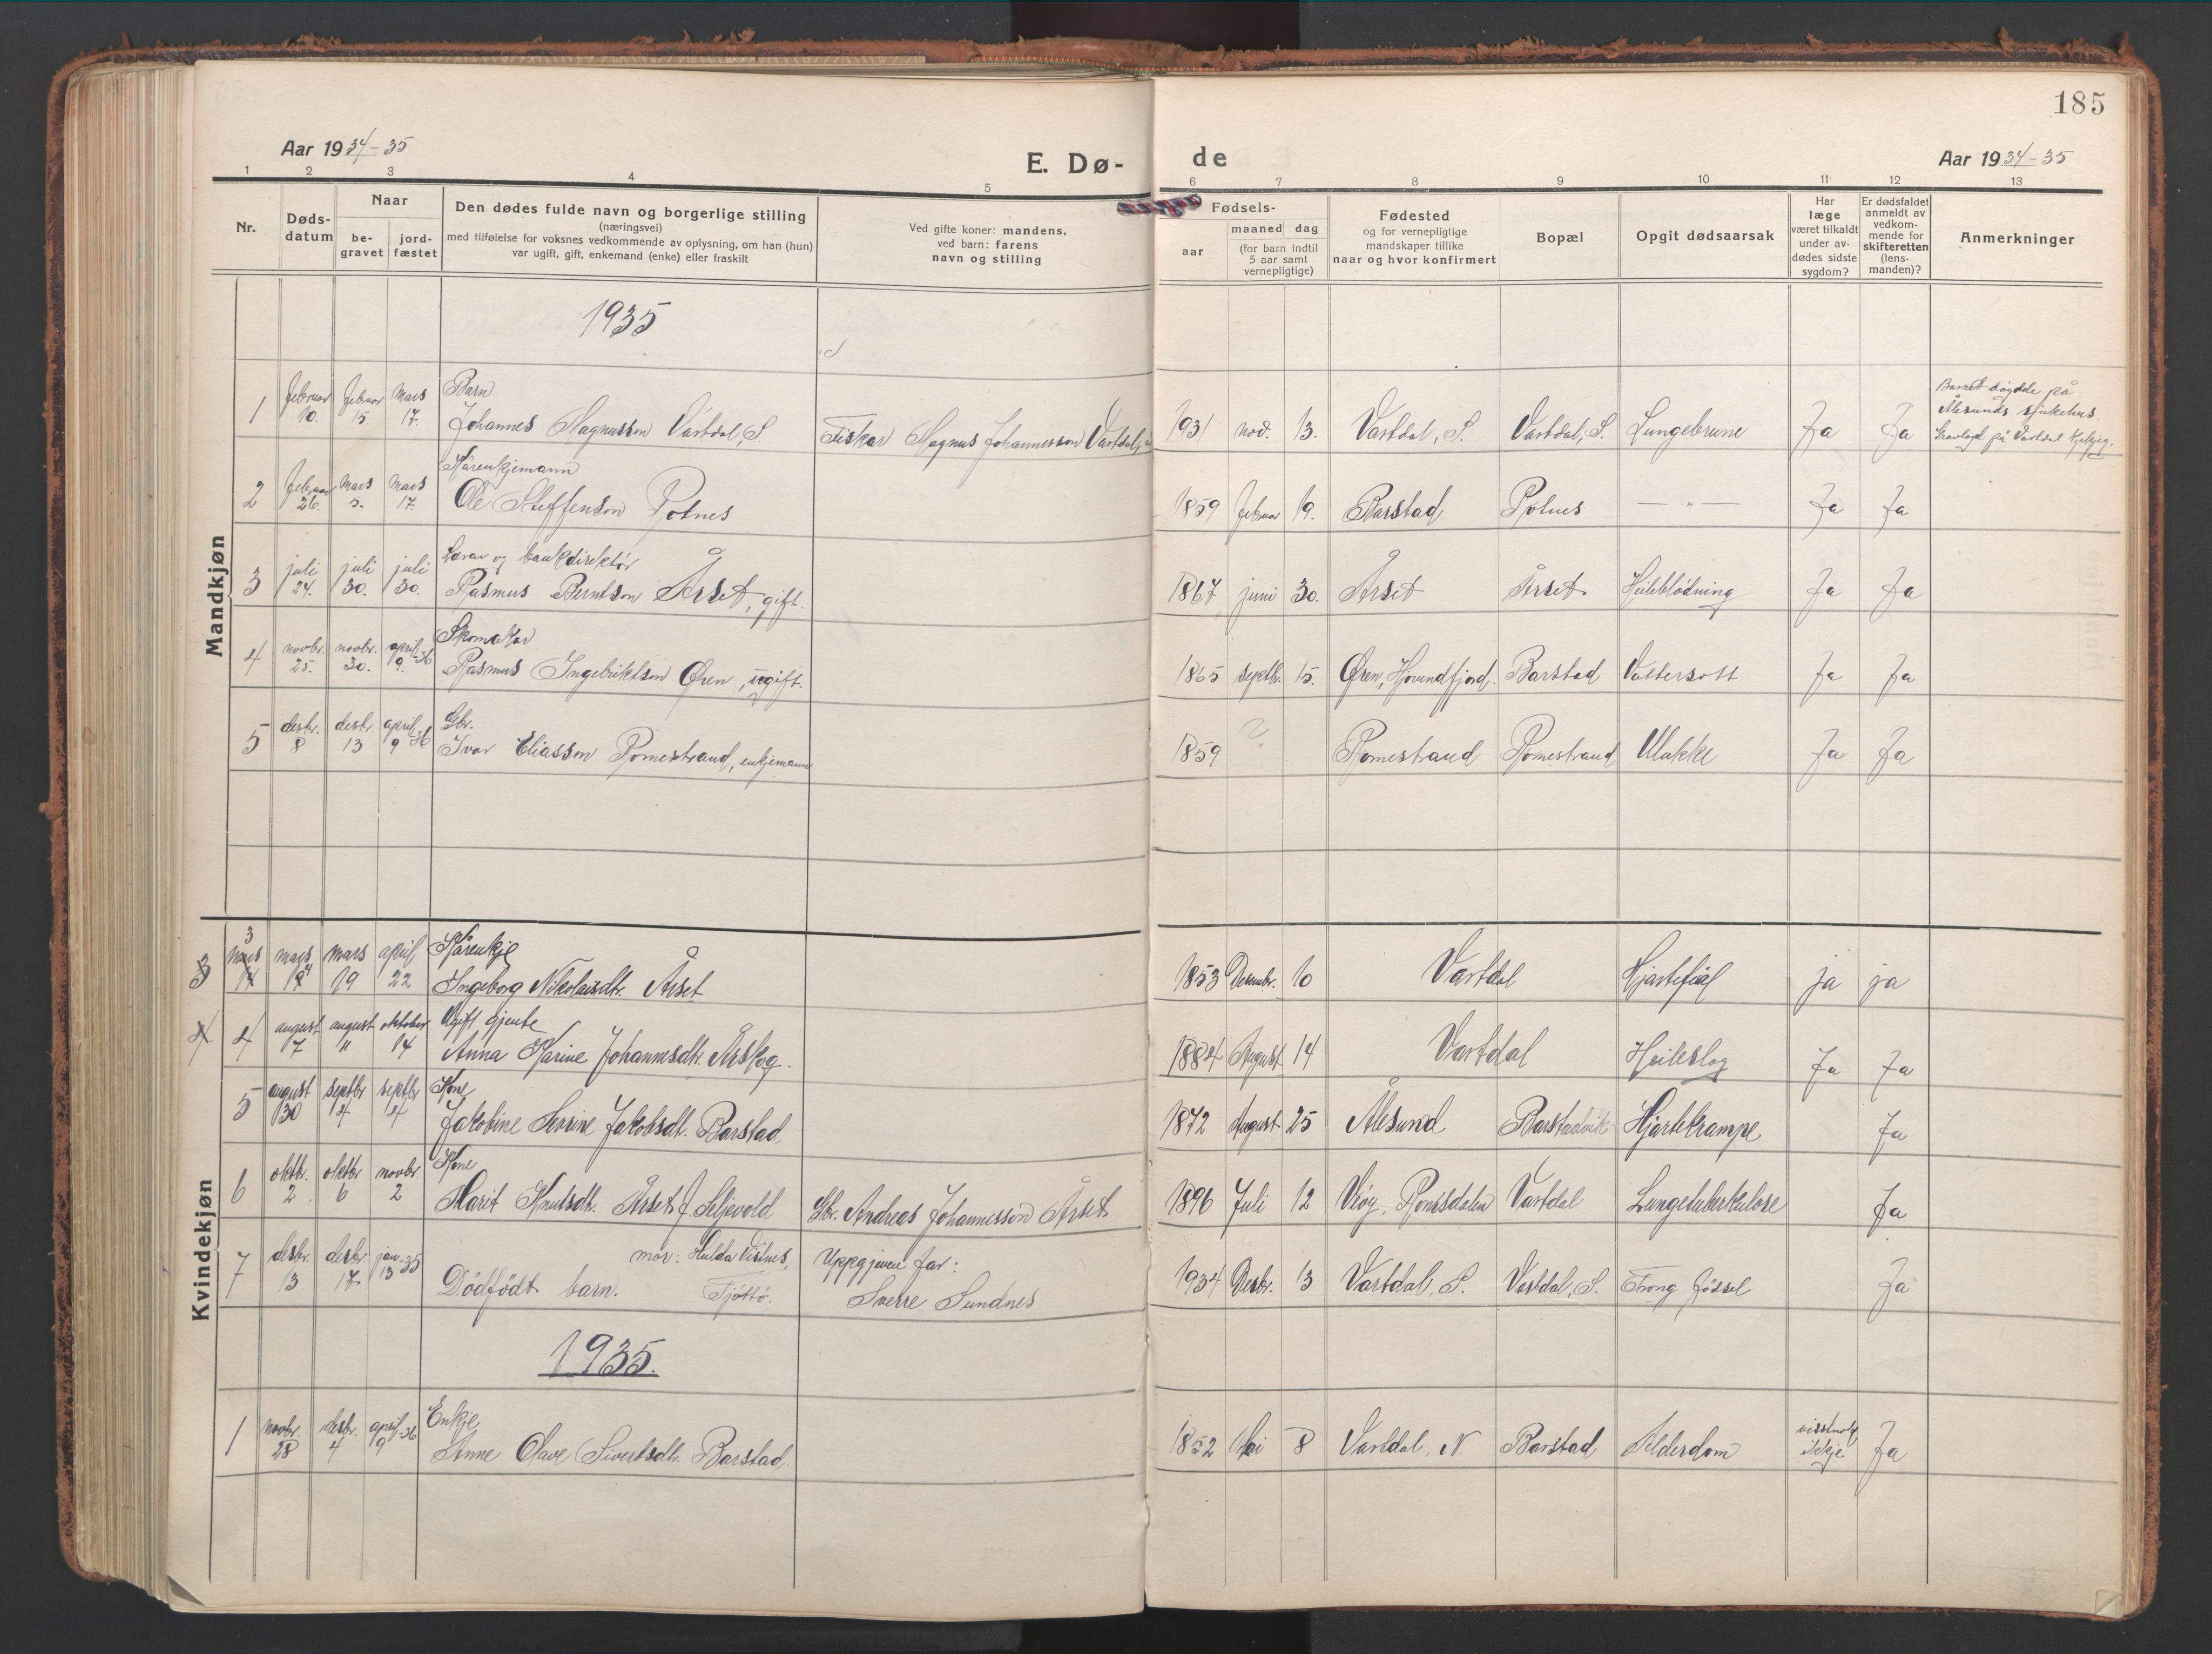 185
Aar 1934-35
E. Dø-
de
Aar 1934-35
1 2 3 4 5 6 7 8 9 10 11 12 13
Nr.
Døds-
datum
Naar
be-
gravet
jord-
fæstet
Den dødes fulde navn og borgerlige stilling
(næringsvei)
med tilføielse for voksnes vedkommende av oplysning, om han (hun)
var ugift, gift, enkemand (enke) eller fraskilt
Ved gifte koner: mandens,
ved barn: farens
navn og stilling
Fødsels-
aar
maaned dag
(for barn indtil
5 aar samt
vernepligtige)
Fødested
og for vernepligtige
mandskaper tillike
naar og hvor konfirmert
Bopæl
Opgit dødsaarsak
Har
læge
været tilkaldt
under av-
dødes sidste
sygdom?
Er dødsfaldet
anmeldt av
vedkom-
mende for
skifteretten
(lens-
manden)?
Anmerkninger
Mandkjøn
1935
1 februar 10. februar 15. mars 17. Barn
Johannes Magnusson Vartdal, S. Fiskar Magnus Johannesson Vartdal, 1931 nov. 13. Vartdal, S. Vartdal, S. Lungebrune Ja Ja
Barnet døydde på
Ålesunds sjukehus
Gravlagd på Vartdal kyrkjeg.
2 februar 26. mars 5. mars 17. Kårenkjemann
Ole Steffenson Rotnes 1859 februar 19. Barstad Rotnes — " — Ja Ja
3 juli 24. juli 30. juli 30. Lærar og bankdirektør
Rasmus Berntson Årset, gift. 1867 juni 30. Årset Årset Heileblødning Ja Ja
4 novbr. 25. novbr. 30. april 9.-36 Skomakar
Rasmus Ingebriktson Øren, ugift. 1865 septbr. 15. Øren, Hjørundfjord. Barstad Vattersott Ja Ja
5 desbr. 8 desbr 13 april 9 -36 Gbr.
Ivar Eliasson Romestrand, enkjemann 1859 ? Romestrand Romestrand Ulukke Ja Ja
Kvindekjøn
3 3 mars 14 mars 14 mars 19 april 22 Kårenkje
Ingeborg Nikolaisdtr. Årset 1853 Desembr. 10 Vartdal Hjartefeil ja ja
4 4 august 7 august 11 oktober 14 Ugift gjente
Anna Karine Johannesdtr. Årskog. 1884 August 14 Vartdal Heileslag Ja Ja
5 august 30 septbr 4 septbr 4 Kone
Jakobine Serine Jakobsdt. Barstad 1872 August 25 Ålesund Barstadvik Hjartekrampe Ja
6 oktbr. 2 oktbr 6 novbr. 2 Kone
Marit Knutsdtr. Årset f. Seljevold Gbr. Andreas Johannesson Årset 1896 Juli 12 Veøy, Romsdalen Vartdal Lungetuberkulose Ja
7 desbr. 13 desbr 17 jan 13 -35 mor: Hulda Vistnes, Uppgjeven far:
Dödfödt barn. Tjöttö. Sverre Sundnes 1934 Desbr. 13 Vartdal, S. Vartdal, S. Trong födsel Ja
1935.
1 novbr. 28 desbr. 4 april 9 -36 Enkje
Anne Olave Sivertsdtr. Barstad 1852 Mai 8 Vartdal, N. Barstad Alderdom visstnok
ikkje Ja